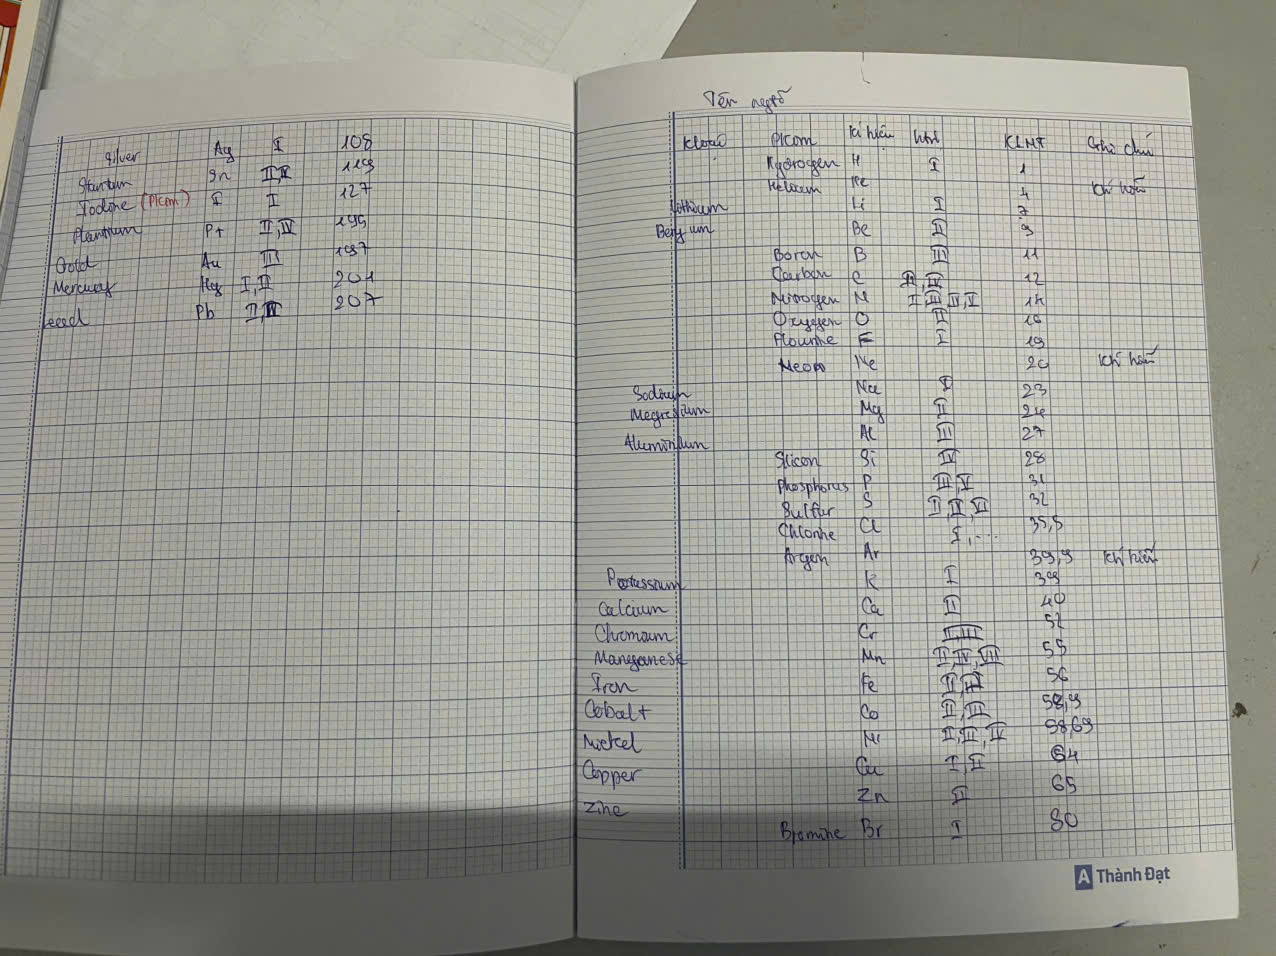 Silver Ag I 108
Sn II,IV 119
Iodine (Pkim) I I 127
Pt II,IV 195
Gold Au III 197
Mercury Hg I,II 201
Lead Pb II,IV 207
Tên ngtố
KLoại Pkim Kí hiệu htrị KLNT Ghi chú
Hydrogen H I 1
Helium He 4 khí hiếm
Lithium Li I 7
Be II 9
Boron B III 11
Carbon C II,IV 12
Nitrogen N I III IV,V 14
Oxygen O II 16
F I 19
Neon Ne 20 khí hiếm
Sodium Na I 23
Mg II 24
Aluminium Al III 27
Silicon Si IV 28
Phosphorus P III,V 31
Sulfur S II,IV,VI 32
Cl I,... 35,5
Argon Ar 39,9 khí hiếm
K I 39
Calcium Ca II 40
Cr II,III 52
Manganese Mn II,IV,VII 55
Iron Fe II,III 56
Cobalt Co II,III 58,9
Nickel Ni 58,69
Copper Cu I,II 64
Zinc Zn II 65
Bromine Br I 80
A Thành Đạt